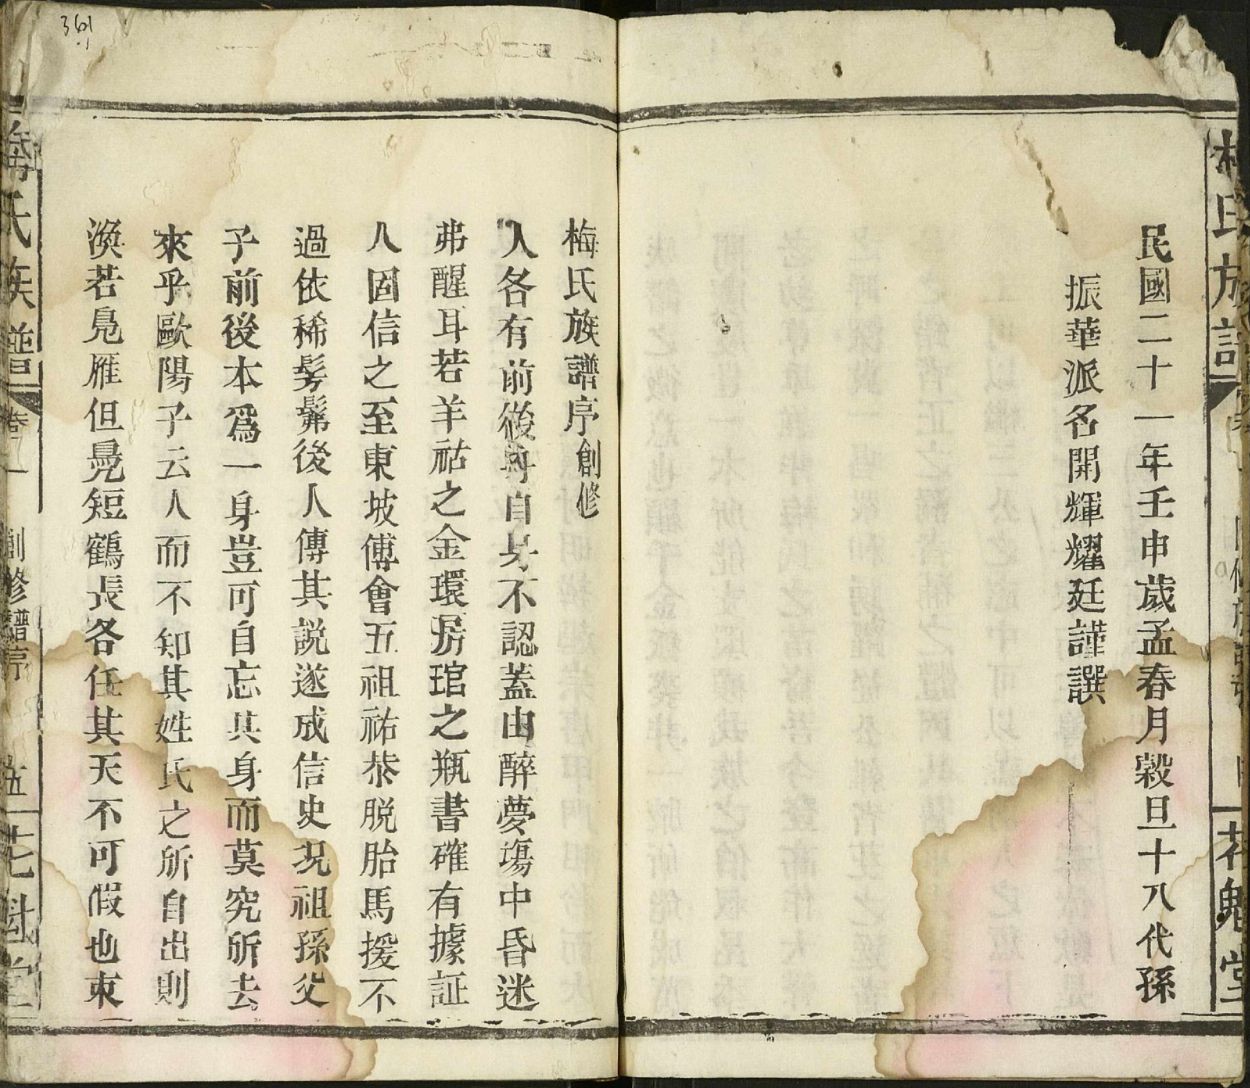 361
民國二十一年壬申歲孟春月穀旦十八代孫
振華派名開輝耀廷謹譔
梅氏族譜序創修
人各有前後身自身不認蓋由醉夢塲中昏迷
弗醒耳若羊祜之金環房琯之瓶書確有據証
人固信之至東坡傅會五祖祐恭脱胎馬援不
過依稀髣髴後人傳其説遂成信史況祖孫父
子前後本爲一身豈可自忘其身而莫究所去
來乎歐陽子云人而不知其姓氏之所自出則
渙若鳧雁但鳧短鶴長各任其天不可假也東
梅氏族譜
卷一
創修譜序
五
花魁堂